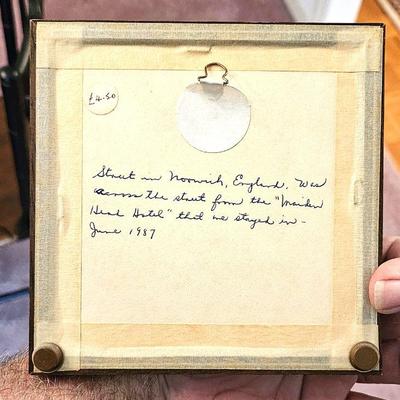 £4.50
Street in Norwich, England. Was
across the street from the "Maiden
Head Hotel" that we stayed in -
June 1987